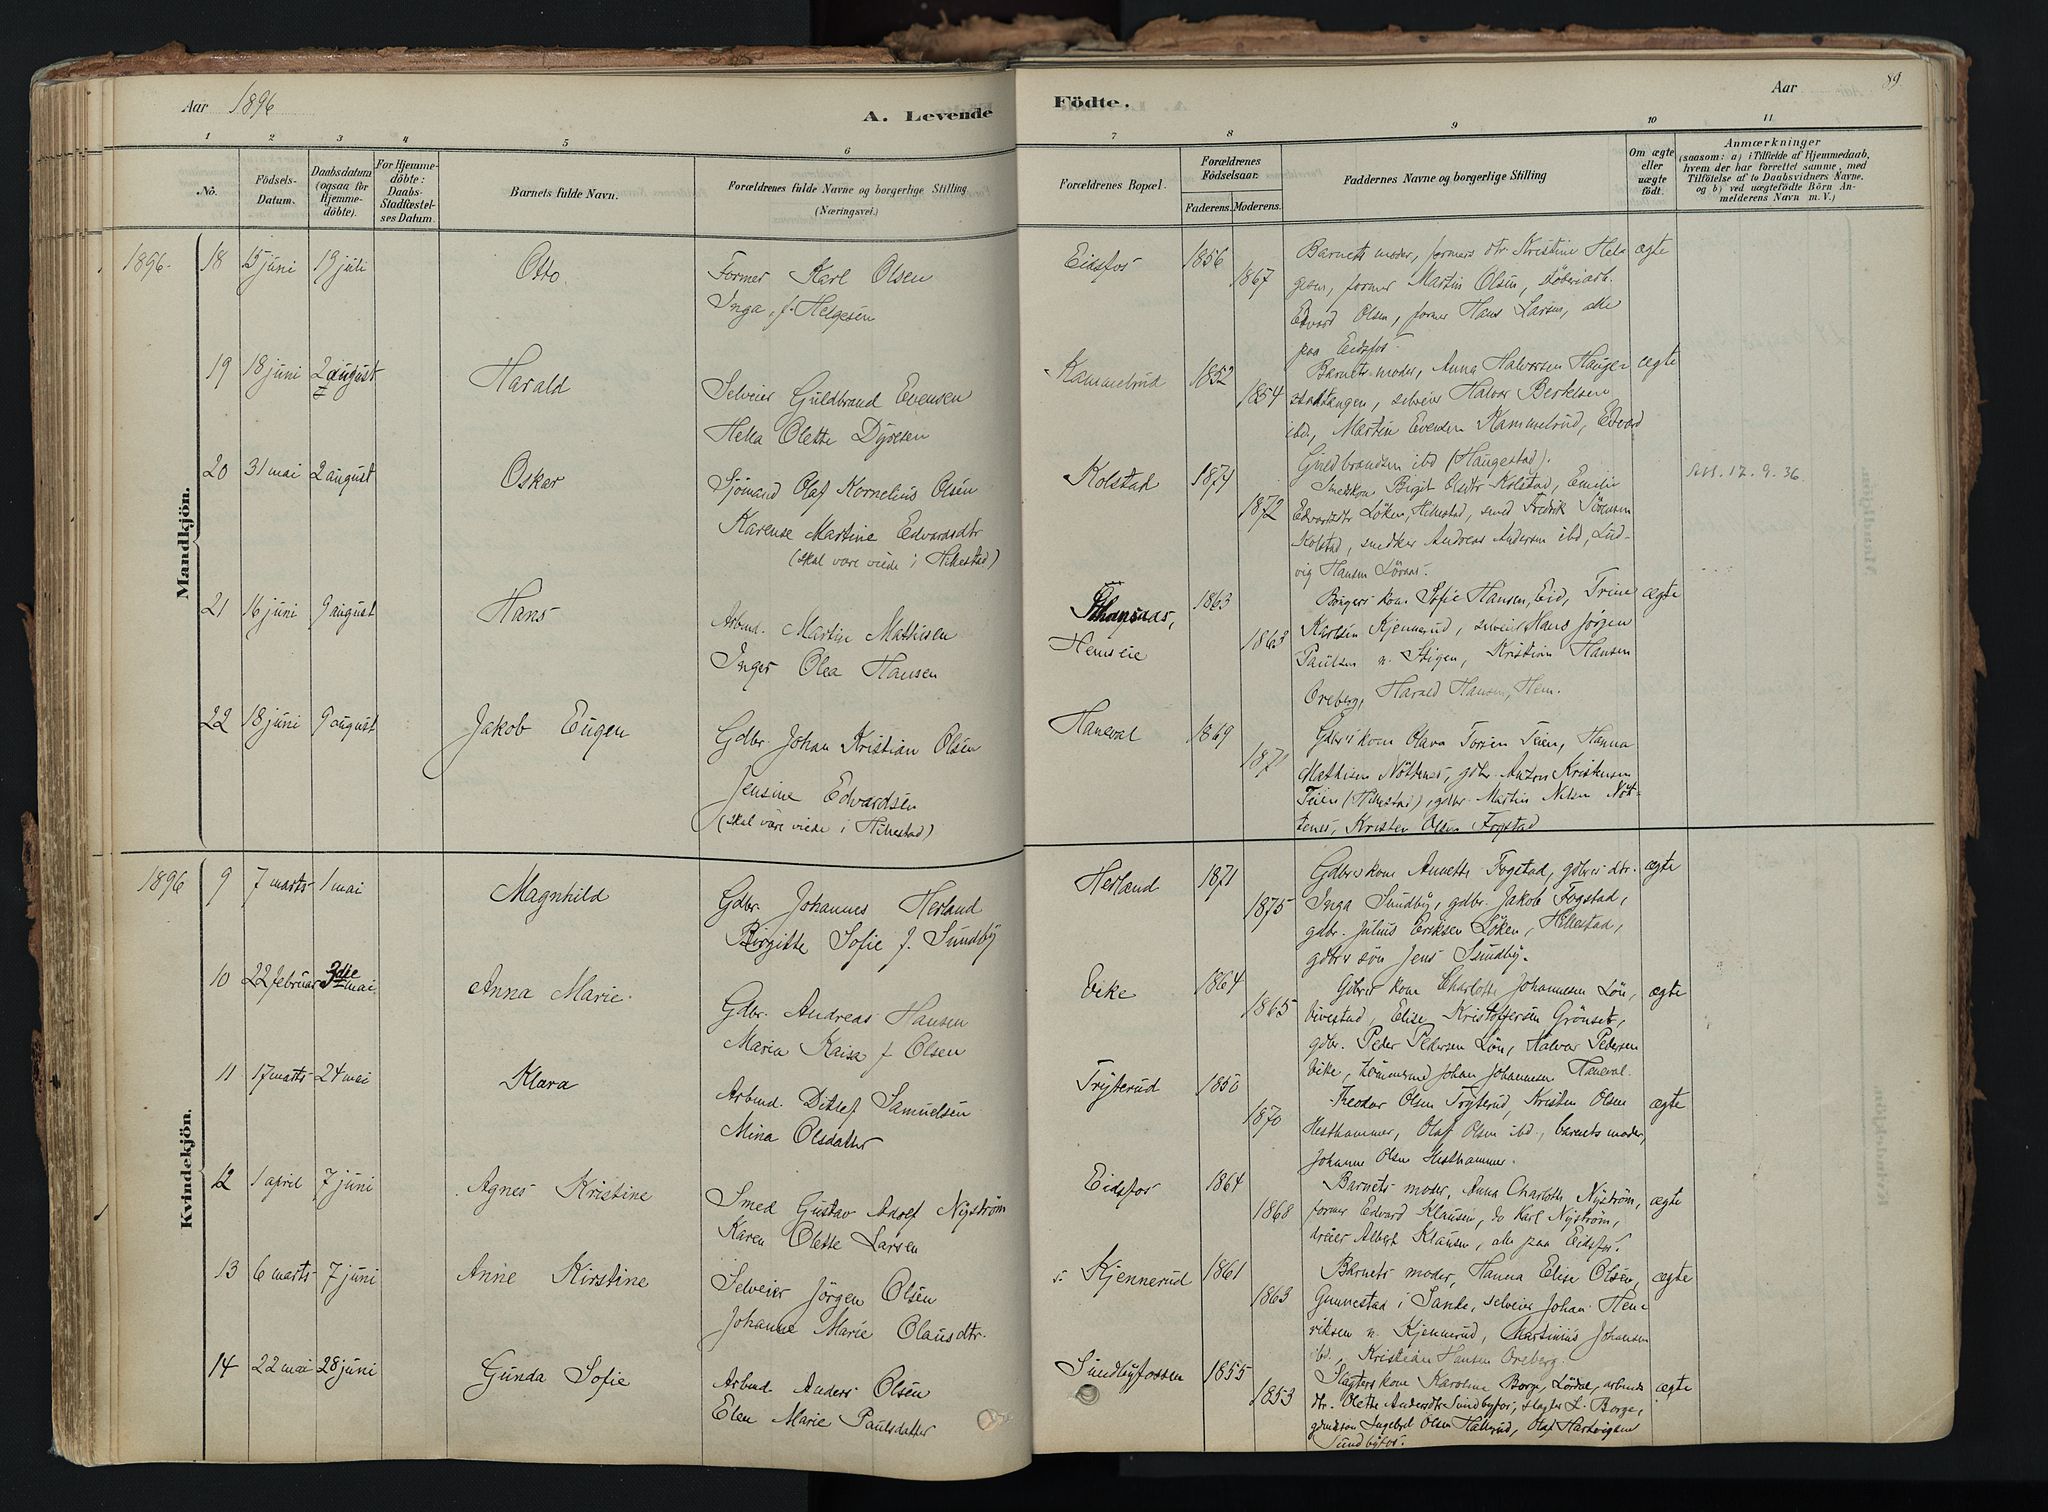 Aar 1896
A. Levende
Födte.
Aar
89
1 2 3 4 5 6 7 8 9 10 11
No.
Födsels-
Datum.
Daabsdatum
(ogsaa for
Hjemme-
döbte).
For Hjemme-
döbte:
Daabs-
Stadfæstel-
ses Datum.
Barnets fulde Navn.
Forældrenes fulde Navne og borgerlige Stilling
(Næringsvei.)
Forældrenes Bopæl.
Forældrenes
Födselsaar.
Faderens. Moderens.
Faddernes Navne og borgerlige Stilling
Om ægte
eller
uægte
födt.
Anmærkninger
(saasom: a) i Tilfælde af Hjemmedaab,
hvem der har forrettet samme, med
Tilföielse af to Daabsvidners Navne,
og b) ved uægtefödte Börn An-
melderens Navn m. V.)
Mandkjön.
1896. 18 15 juni 19 juli Otto.
Former Karl Olsen
Inga, f. Helgesen
Eidsfos 1856 1867
Barnets moder, formers dtr. Kristine Hel-
gesen, former Martin Olsen, støberiarb.
Edvard Olsen, former Hans Larsen, alle
paa Eidsfos.
ægte
19 18 juni 2 august Harald
Selveier Guldbrand Evensen
Helia Olette Dyresen
Kammelrud 1852 1854
Barnets moder, Anna Halvorsen Hauge-
stadtangen, selveier Halvor Bertelsen
ibd., Martin Evensen Kammelrud, Edvard
Guldbrandsen ibd (Haugestad).
ægte
20 31 mai 2 august Oskar
Sjömand Olaf Kornelius Olsen
Karense Martine Edvardsdtr
(skal være viede i Hillestad)
Kolstad 1871 1872
Smedkone Birgit Olsdtr Kolstad, Emilie
Edvardsdtr Löken, Hillestad, smed Fredrik Sörensen
Kolstad, snedker Andreas Andersen ibd, Lud-
vig Hansen
17. 9. 36.
21 16 juni 9 august Hans
Arbmd. Martin Mathisen
Inger Olea Hansen
Hemseie 1863 1863
kone Sofie Hansen, Eid, Trine
Karlsen Kjennerud, selveier Hans Jörgen
Paulsen n. Stigen, Kristian Hansen
Oreberg, Harald Hansen, Hem.
ægte
22 18 juni 9 august Jakob Eugen
Gdbr. Johan Kristian Olsen
Jensine Edvardsen
(skal være viede i Hillestad)
Haneval 1869 1871
Gdbrs kone Olava Teien, Hanna
Mathisen Nöttenes, gdbr. Anton Kristensen
Teien (Hillestad), gdbr. Martin Nilsen Nöt-
tenes, Kristen Olsen Fogstad
Kvindekjön.
1896 9 7 marts 1 mai Magnhild
Gdbr. Johannes Hesland
Birgitte Sofie f. Sundby
Hesland 1871 1875
Gdbrs kone Annette Fogstad, gdbrs dtr.
Inga Sundby, gdbr. Jakob Fogstad,
gdbr. Julius Eriksen Löken, Hillestad,
gdbrs sön Jens Sundby.
ægte
10 22 februar 3die mai. Anna Marie.
Gdbr. Andreas Hansen
Maria Kaisa f. Olsen
Vike 1864 1865
Gdbrs kone Charlotte Johannesen Lön,
Vivestad, Elise Kristoffersen Grönset,
gdbr. Peder Pedersen Lön, Halvor Pedersen
Vike, tömmermd Johan Johannesen Haneval.
ægte
11 17 marts 24 mai Klara
Arbmd. Ditlef Samuelsen
Mina Olsdatter
Tryterud 1850 1870
Theodor Olsen Tryterud, Kristen Olsen
Hesthammer, Olaf Olsen ibd., barnets moder,
Johanne Olsen Hesthammer.
ægte
12 1 april 7 juni Agnes Kristine
Smed Gustav Adolf Nyström
Karen Olette Larsen
Eidsfos 1864 1868
Barnets moder, Anna Charlotte Nyström,
former Edvard Klausen, do Karl Nyström,
dreier Albert Klausen, alle paa Eidsfos.
ægte
13 6 marts 7 juni Anne Kirstine
Selveier Jörgen Olsen
Johanne Marie Olausdtr.
s. Kjennerud 1861 1863
Barnets moder, Hanna Elise Olsen,
Gunnestad i Sande, selveier Johan Hen-
riksen n. Kjennerud, Martinius Johansen
ibd., Kristian Hansen Oreberg.
ægte
14 22 mai 28 juni Gunda Sofie
Arbmd. Anders Olsen
Elen Marie Paulsdatter
Sundbyfossen 1855 1853
Slagters kone Karoline Borge, Lördal, arbmds
dtr. Olette Andersdtr Sundbyfos, slagter L. Borge,
Ingebret Olsen Hallerud, Olaf Hartvigsen
Sundbyfos.
ægte